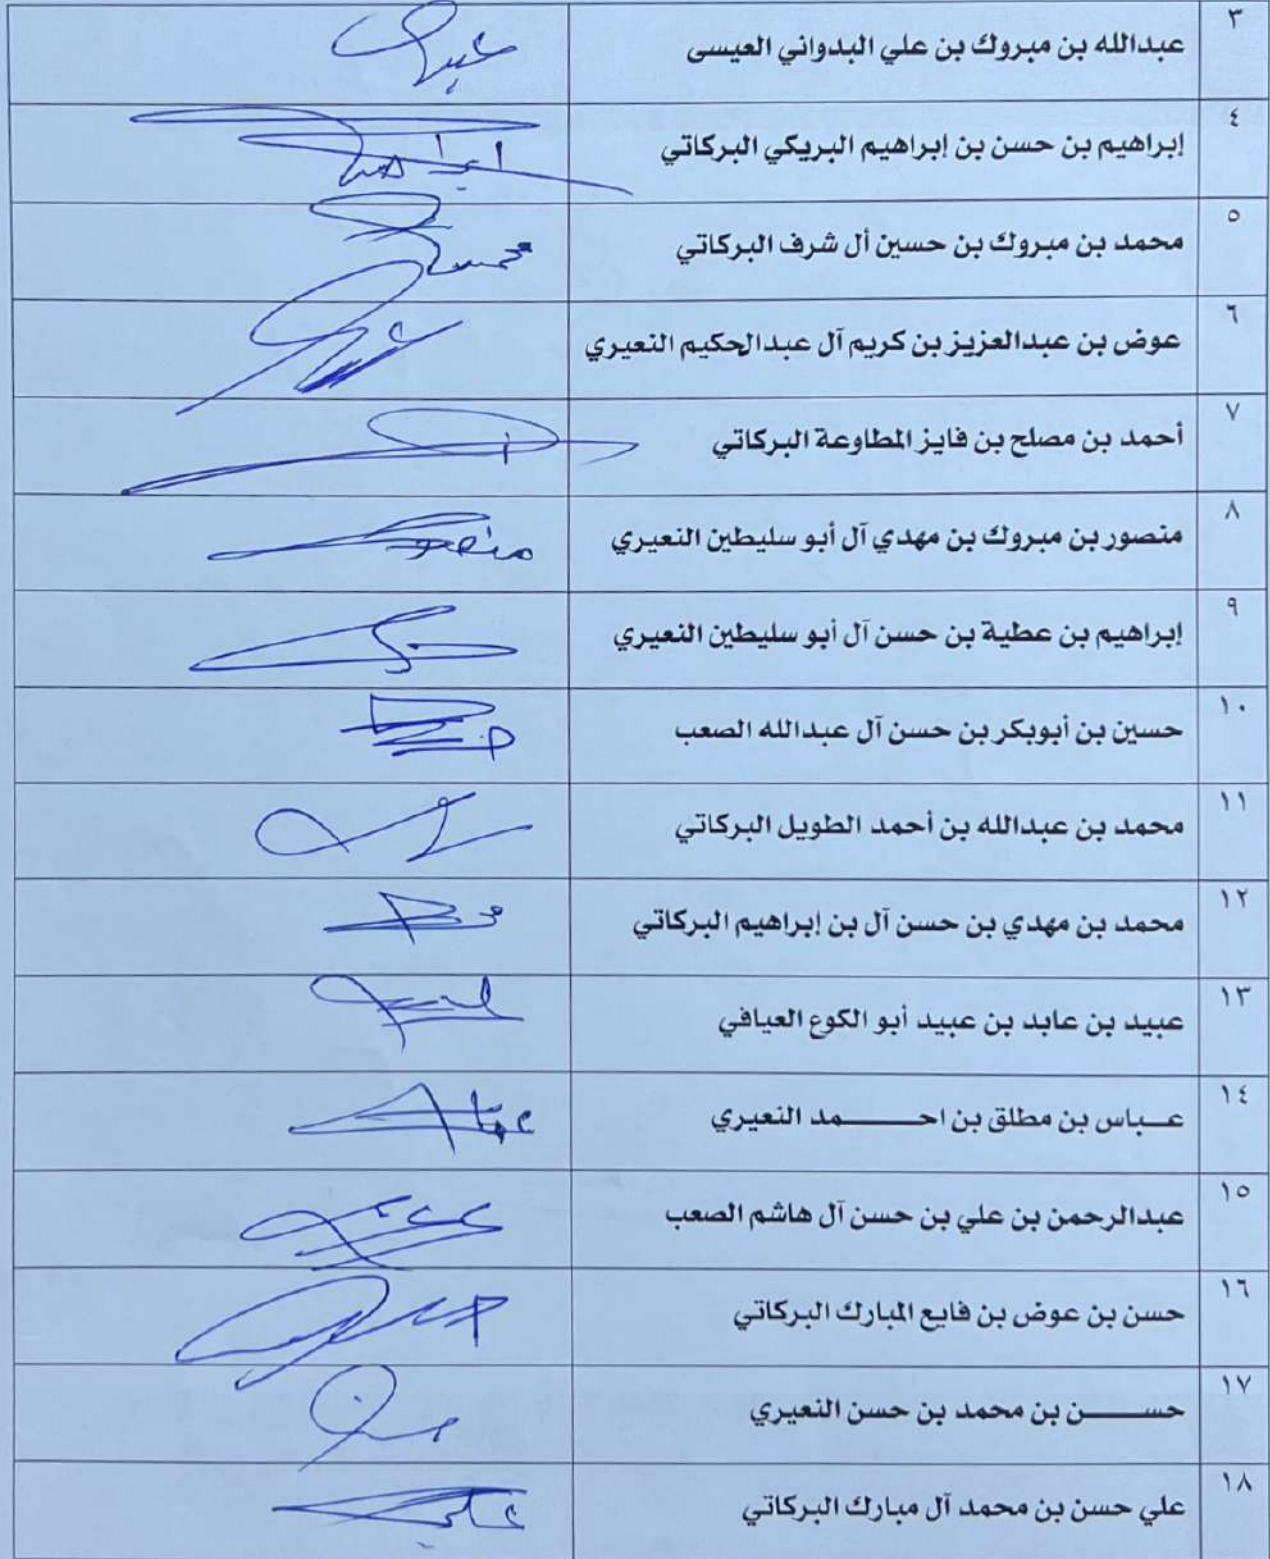 ٣ عبدالله بن مبروك بن علي البدواني العيسى
٤ إبراهيم بن حسن بن إبراهيم البريكي البركاتي
٥ محمد بن مبروك بن حسين أل شرف البركاتي
٦ عوض بن عبدالعزيز بن كريم آل عبدالحكيم النعيري
٧ أحمد بن مصلح بن فايز المطاوعة البركاتي
٨ منصور بن مبروك بن مهدي آل أبو سليطين النعيري منصور
٩ إبراهيم بن عطية بن حسن آل أبو سليطين النعيري
١٠ حسين بن أبوبكر بن حسن آل عبدالله الصعب
١١ محمد بن عبدالله بن أحمد الطويل البركاتي
١٢ محمد بن مهدي بن حسن آل بن إبراهيم البركاتي
١٣ عبيد بن عابد بن عبيد أبو الكوع العيافي
١٤ عـــباس بن مطلق بن احـــــــمد النعيري
١٥ عبدالرحمن بن علي بن حسن آل هاشم الصعب
١٦ حسن بن عوض بن فايع المبارك البركاتي
١٧ حســـــن بن محمد بن حسن النعيري
١٨ علي حسن بن محمد آل مبارك البركاتي